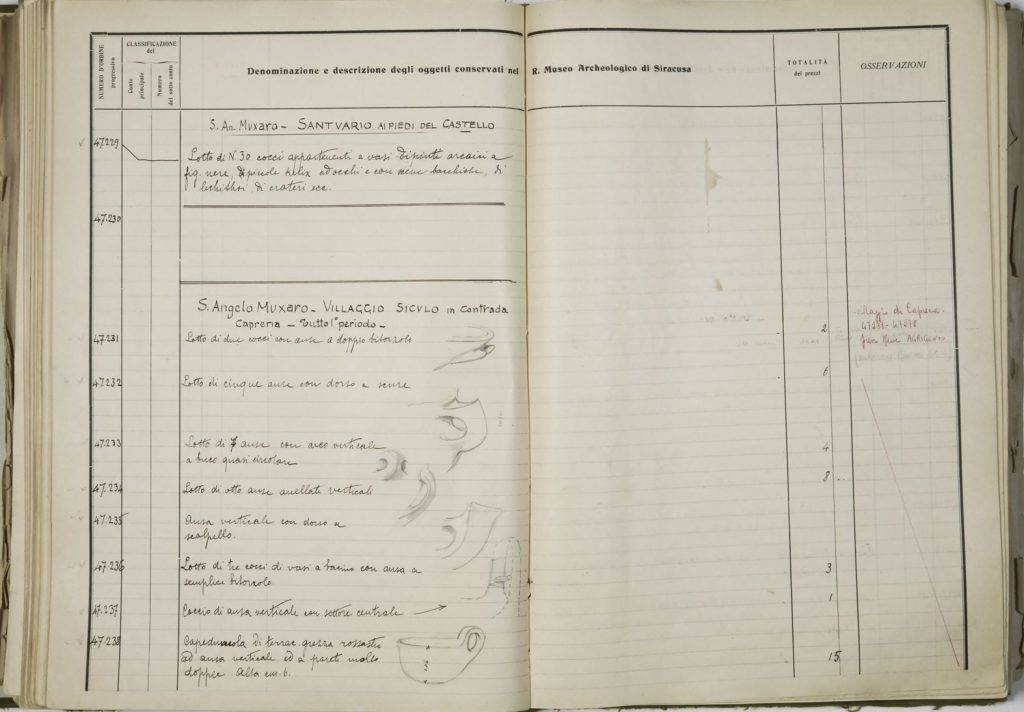 NUMERO D'ORDINE progressivo
CLASSIFICAZIONE del
Conto principale
Numero del sotto conto
Denominazione e descrizione degli oggetti conservati nel R. Museo Archeologico di Siracusa
TOTALITÀ dei prezzi
OSSERVAZIONI
S. An. Muxaro - SANTVARIO AI PIEDI DEL CASTELLO
47.229
Lotto di N. 30 cocci appartenenti a vasi dipinti arcaici a
fig. nere, di piccole kelix ad occhi e con scene bacchiche, di
lekithoi, di crateri ecc.
47.230
S. Angelo MUXARO - VILLAGGIO SICVLO in Contrada
CAPRERIA - Tutto 1° periodo -
47.231
Lotto di due cocci con anse a doppio bitorzolo
2
47.232
Lotto di cinque anse con dorso a
6
47.233
Lotto di 7 anse con arco verticale
a buco quasi circolare
4
47.234
Lotto di otto anse anellate verticali
8
47.235
Ansa verticale con dorso a
scalpello.
47.236
Lotto di tre cocci di vasi a bacino con ansa a
semplice bitorzolo
3
47.237
Coccio di ansa verticale con settore centrale
1
47.238
Capeduncola di terrac. grezza rossastra
ad ansa verticale ed a pareti molto
doppie. Alta cm. 6.
15
di Capreria
47231-47278
AGRIGENTO